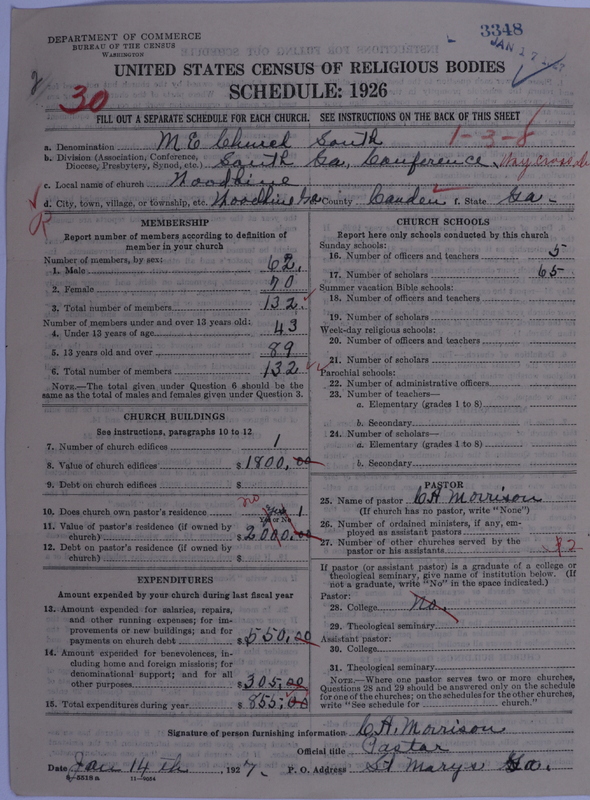 DEPARTMENT OF COMMERCE
BUREAU OF THE CENSUS
WASHINGTON
3348
JAN 27
UNITED STATES CENSUS OF RELIGIOUS BODIES
SCHEDULE: 1926
30
FILL OUT A SEPARATE SCHEDULE FOR EACH CHURCH. SEE INSTRUCTIONS ON THE BACK OF THIS SHEET
a. Denomination M E Church South 1-3-8
b. Division (Association, Conference,
Diocese, Presbytery, Synod, etc.) South Ga. Conference. Waycross
c. Local name of church Woodbine
d. City, town, village, or township, etc. Woodbine Ga County Camden f. State Ga-
MEMBERSHIP
Report number of members according to definition of
member in your church
Number of members, by sex:
1. Male 62.
2. Female 70
3. Total number of members 132
Number of members under and over 13 years old:
4. Under 13 years of age 43
5. 13 years old and over 89
6. Total number of members 132
NOTE.—The total given under Question 6 should be the
same as the total of males and females given under Question 3.
CHURCH BUILDINGS
See instructions, paragraphs 10 to 12
7. Number of church edifices 1
8. Value of church edifices $1800.00
9. Debt on church edifices $
10. Does church own pastor's residence no 1
Yes or No
11. Value of pastor's residence (if owned by
church) $2000.00
12. Debt on pastor's residence (if owned by
church) $
EXPENDITURES
Amount expended by your church during last fiscal year
13. Amount expended for salaries, repairs,
and other running expenses; for im-
provements or new buildings; and for
payments on church debt $550.00
14. Amount expended for benevolences, in-
cluding home and foreign missions; for
denominational support; and for all
other purposes $305.00
15. Total expenditures during year $855.00
CHURCH SCHOOLS
Report here only schools conducted by this church
Sunday schools:
16. Number of officers and teachers 5
17. Number of scholars 65
Summer vacation Bible schools:
18. Number of officers and teachers
19. Number of scholars
Week-day religious schools:
20. Number of officers and teachers
21. Number of scholars
Parochial schools:
22. Number of administrative officers
23. Number of teachers—
a. Elementary (grades 1 to 8)
b. Secondary
24. Number of scholars—
a. Elementary (grades 1 to 8)
b. Secondary
PASTOR
25. Name of pastor C H Morrison
(If church has no pastor, write "None")
26. Number of ordained ministers, if any, em-
ployed as assistant pastors
27. Number of other churches served by the
pastor or his assistants 2
If pastor (or assistant pastor) is a graduate of a college or
theological seminary, give name of institution below. (If
not a graduate, write "No" in the space indicated.)
Pastor:
28. College No.
29. Theological seminary
Assistant pastor:
30. College
31. Theological seminary
NOTE.—Where one pastor serves two or more churches,
Questions 28 and 29 should be answered only on the schedule
for one of the churches; on the schedules for the other churches,
write "See schedule for church."
Signature of person furnishing information C. H. Morrison
Official title Pastor
Date Jan 14th, 1927. P. O. Address St Marys Ga.